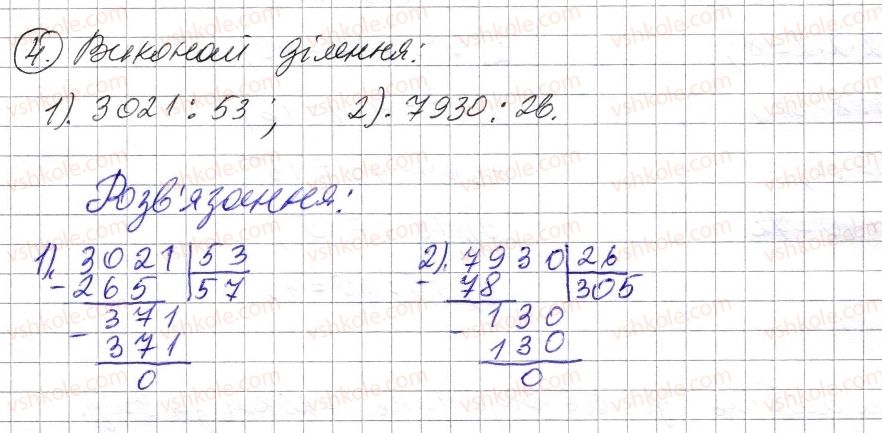 4. Виконай ділення:
1). 3021 : 53; 2). 7930 : 26.
Розв'язання:
1). 3021 | 53 2). 7930 | 26
- 265 | 57 - 78 | 305
- 371 - 130
371 130
0 0